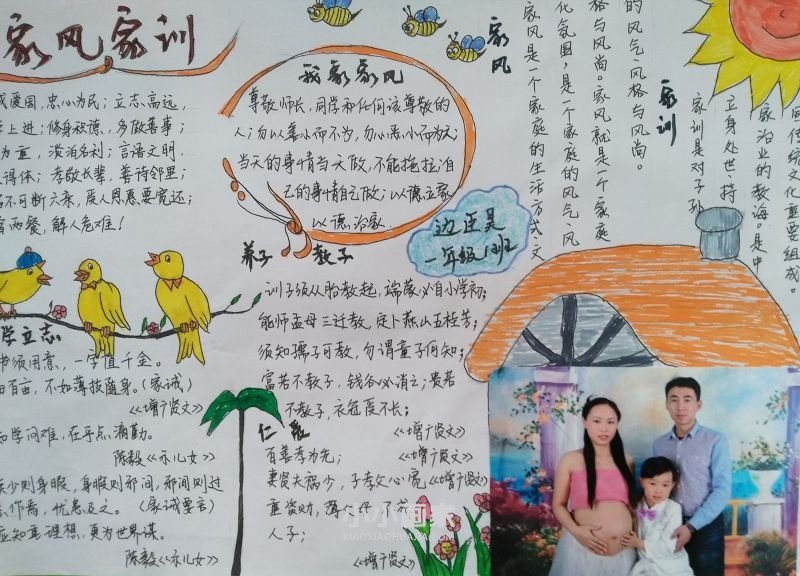 家风家训
爱国，忠心为民；立志高远，
上进；修身被德，多做善事；
为重，淡泊名利；言语文明，
得体；孝敬长辈，善待邻里；
不可断六亲，度人恩惠要宽远；
两餐，解人危难！
我家家风
尊敬师长，同学和任何该尊敬的
人；勿以善小而不为，勿以恶小而为之；
当天的事情当天做，不能拖拉，自
己的事情自己做；以德立家，
以德治家
边还是
一年级1班
家风
家风是一个家庭的生活方式、文
化氛围，是一个家庭的风气、风
格与风尚。家风就是一个家庭
的风气、风格与风尚。
家训
家训是对子孙
立身处世、持
家治业的教诲。是中
传统文化重要组成。
养子 教子
训子须从胎教起，端蒙必自小学初；
能师孟母三迁教，定卜燕山五桂芳；
须知孺子可教，勿谓童子何知；
富若不教子，钱谷必消亡；贵若
不教子，衣冠度不长；
《增广贤文》
学立志
书须用意，一字值千金。
百亩，不如薄技随身。（家诫）
《增广贤文》
知学问难，在乎点滴勤。
陈毅《示儿女》
少则身暇，身暇则邪间，邪间则过
作焉，忧患及之。（家诫要言）
应知重理想，更为世界谋。
陈毅《示儿女》
百善孝为先；
《增广贤文》
妻贤夫祸少，子孝父心宽《增广贤文》
重资财，薄父母，不成
人子；
《增广贤文》
小小画未
XIAOXIAOHUAJIA.COM